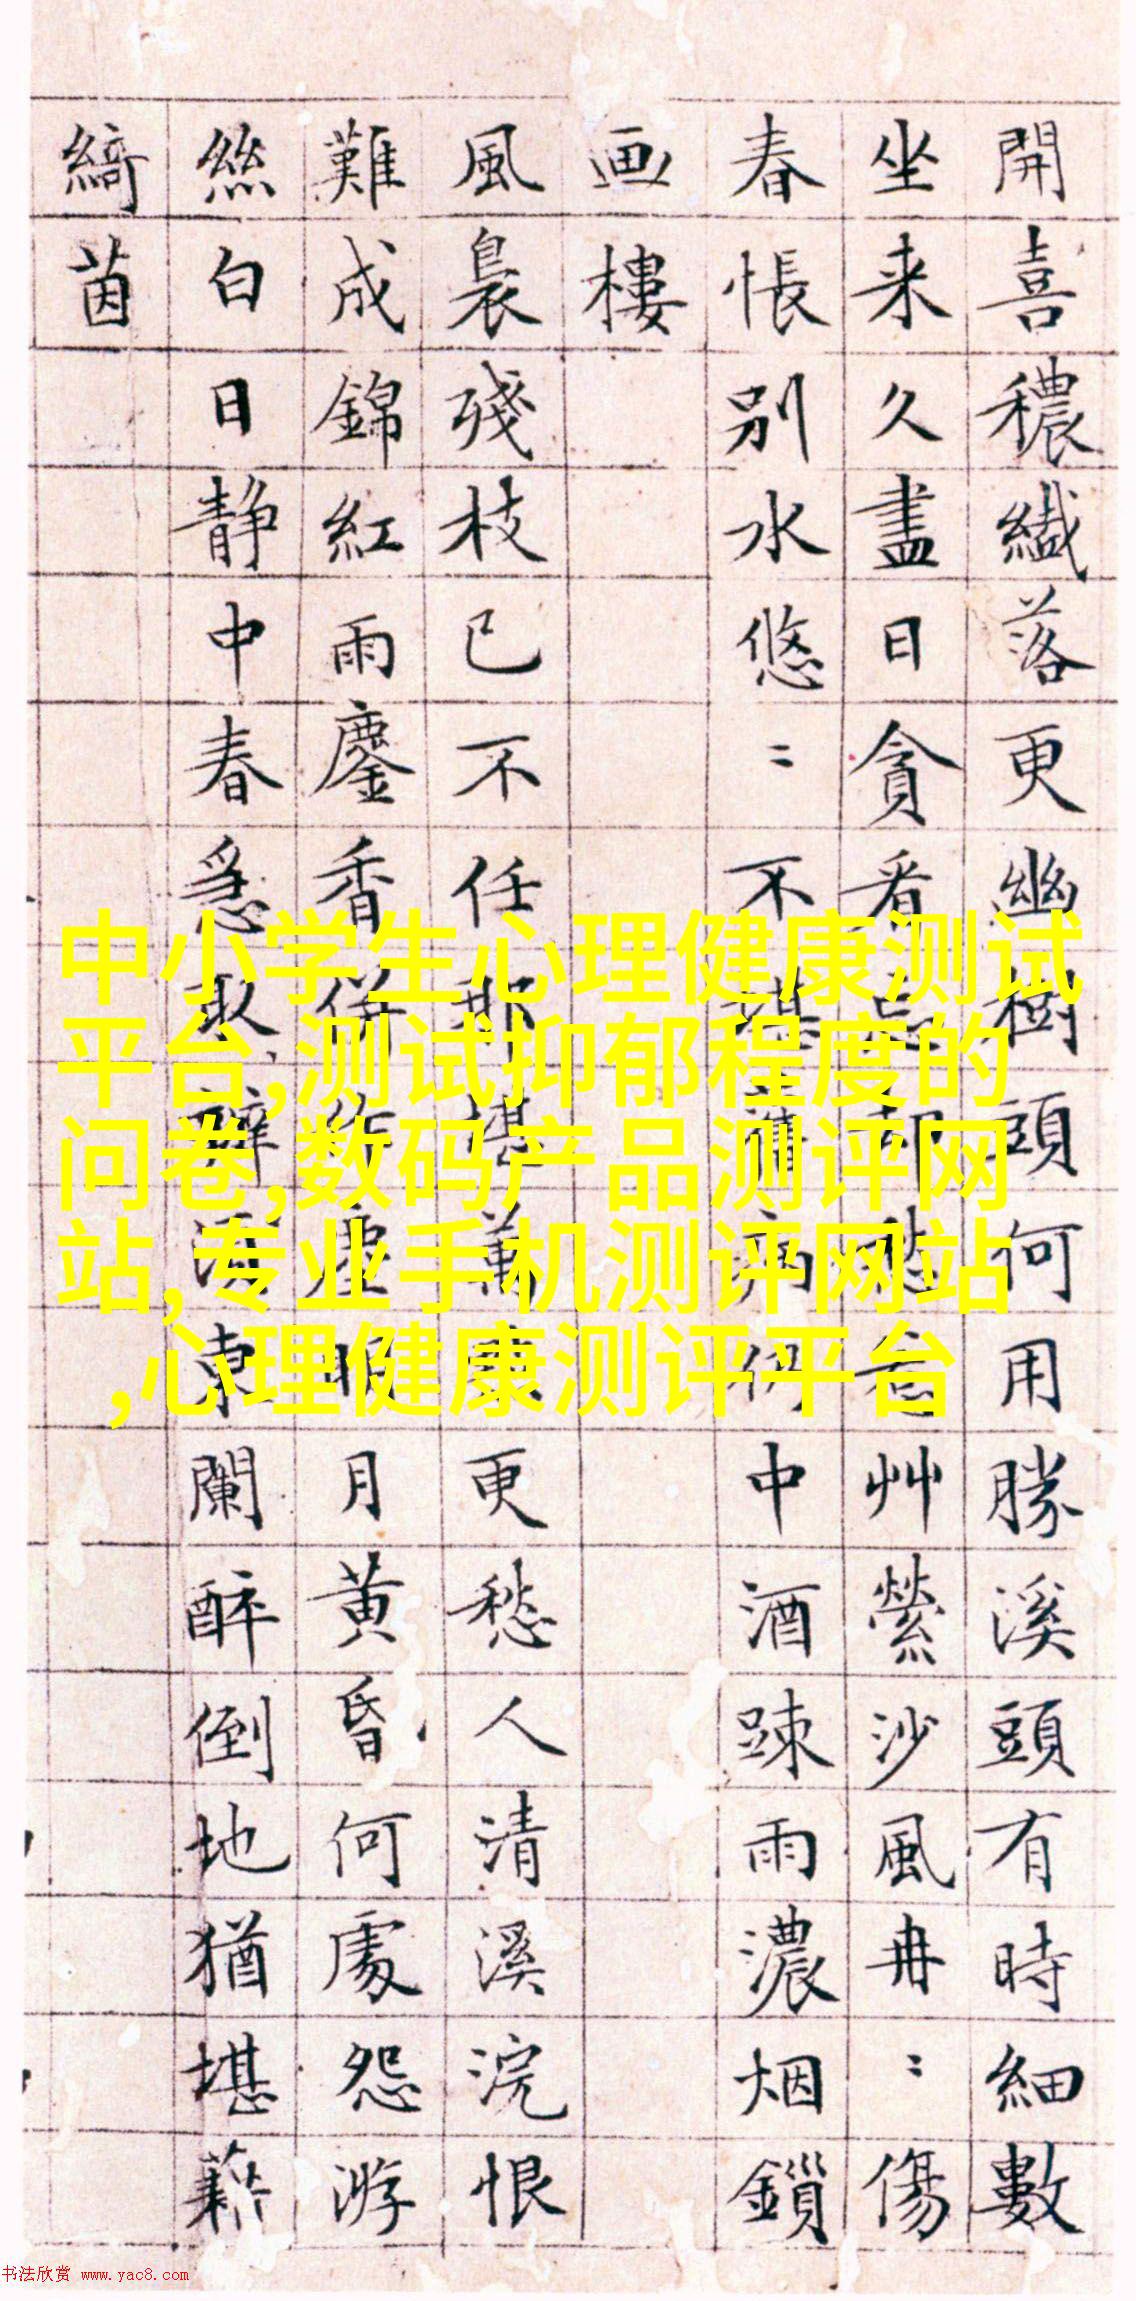 開喜穠纖落更幽樹頭何用勝溪頭有時細數
坐来久盡日貪看忘却愁老艸縈沙風冉〻傷
春悵別水悠〻不堪病仍中酒踈雨濃烟鎖
画樓
風裊殘枝已不任那堪萬更愁人清溪浣恨
難成錦紅雨鏖香併作塵明月黄昏何處怨游
絲白日静中春急東闌醉倒地猶堪藉
綺茵
中小学生心理健康测试
平台,测试抑郁程度的
问卷,数码产品测评网
站,专业手机测评网站
,心理健康测评平台
书法欣赏 www.yac8.com